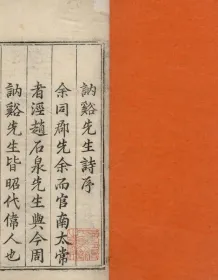 訥谿先生詩序
余同郡先余而官南太常
者涇趙石泉先生與今周
訥谿先生皆昭代偉人也